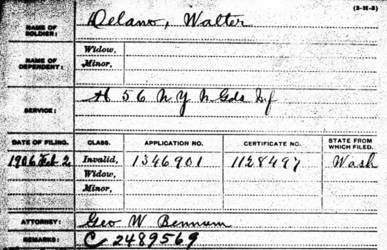 (3-H-3)
NAME OF SOLDIER: Delano, Walter
NAME OF DEPENDENT: Widow, Minor,
SERVICE: H 56 N Y N Gds Inf
DATE OF FILING. CLASS. APPLICATION NO. CERTIFICATE NO. STATE FROM WHICH FILED.
1906 Feb 2 Invalid, 1346901 1128497 Wash
Widow,
Minor,
ATTORNEY: Geo W Bennum
REMARKS: C 2489569